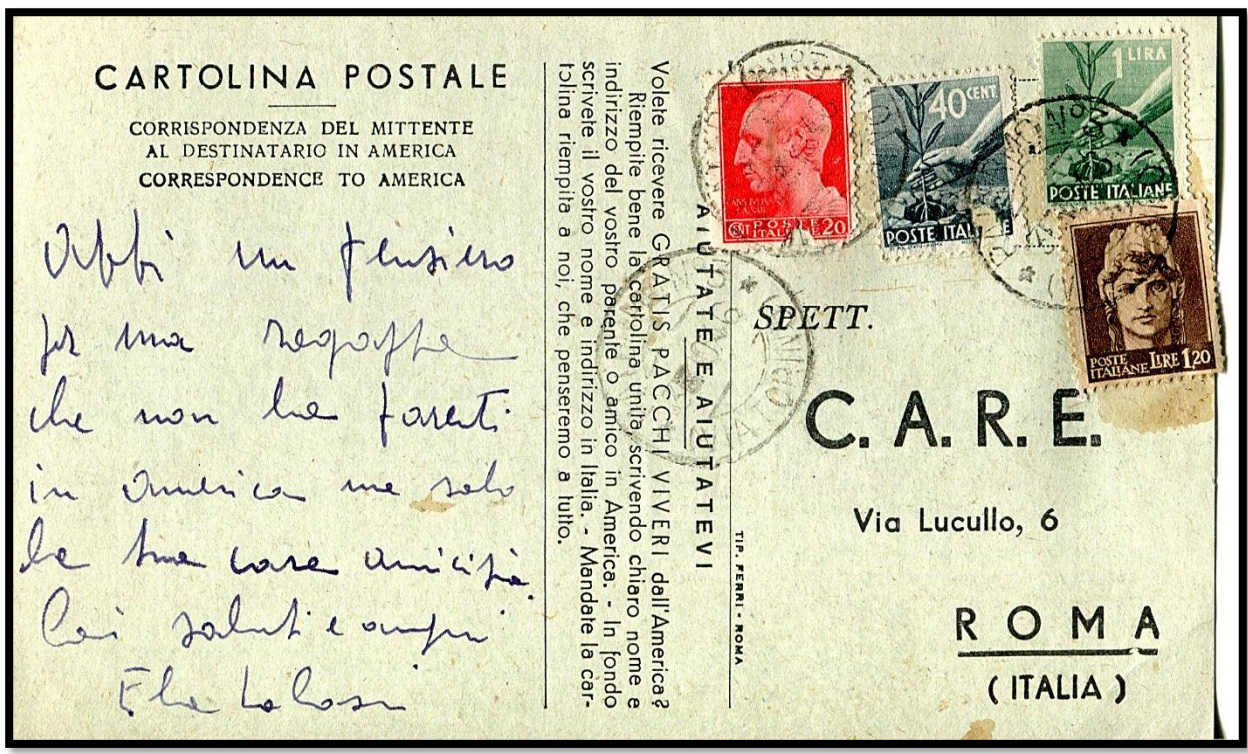 CARTOLINA POSTALE
CORRISPONDENZA DEL MITTENTE
AL DESTINATARIO IN AMERICA
CORRESPONDENCE TO AMERICA
Abbi un pensiero
per una ragazza
che non ha parenti
in America ma solo
la tua cara amicizia.
Cari saluti e auguri
AIUTATE E AIUTATEVI
Volete ricevere GRATIS PACCHI VIVERI dall'America?
Riempite bene la cartolina unita, scrivendo chiaro nome e
indirizzo del vostro parente o amico in America. - In fondo
scrivete il vostro nome e indirizzo in Italia. - Mandate la car-
tolina riempita a noi, che penseremo a tutto.
TIP. FERRI - ROMA
POSTE
ITALIANE 20
40 CENT
POSTE ITALIANE
1 LIRA
POSTE ITALIANE
POSTE
ITALIANE LIRE 1,20
SPETT.
C. A. R. E.
Via Lucullo, 6
ROMA
(ITALIA)